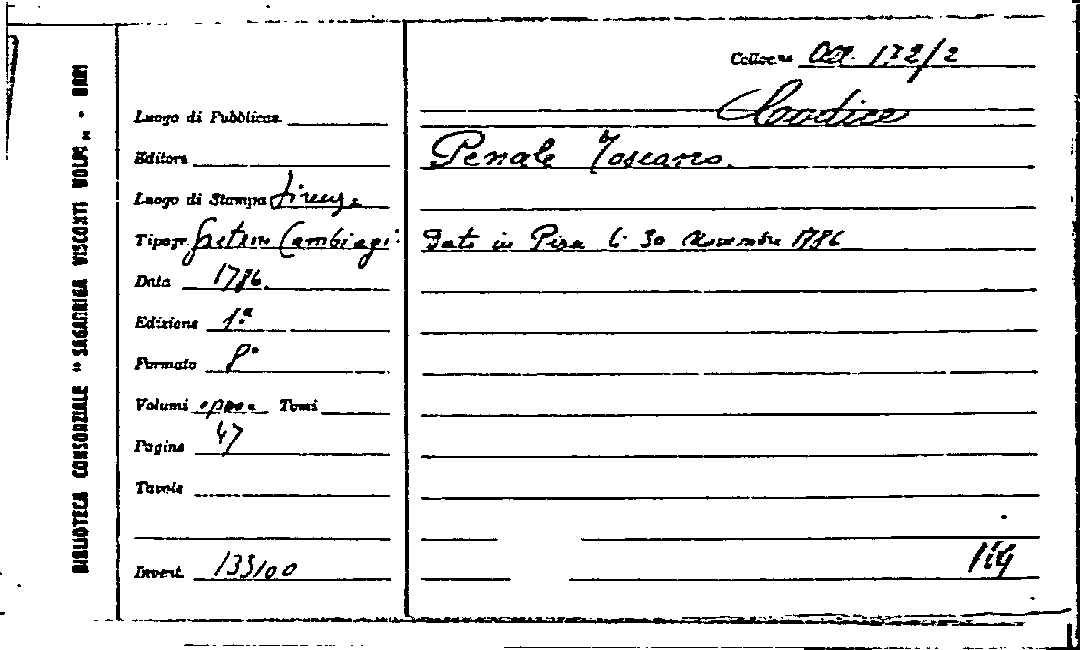 BIBLIOTECA CONSORZIALE "SAGARRIGA VISCONTI VOLPI" - BARI
Collocaz. 132/2
Codice
Luogo di Pubblicaz.
Editore
Penale Toscano.
Luogo di Stampa Firenze
Tipogr. Gaetano Cambiagi
Dato in Pisa li 30 Novembre 1786
Data 1786.
Edizione 1.ª
Formato 8°
Volumi Tomi
Pagine 47
Tavole
Invent. 133100